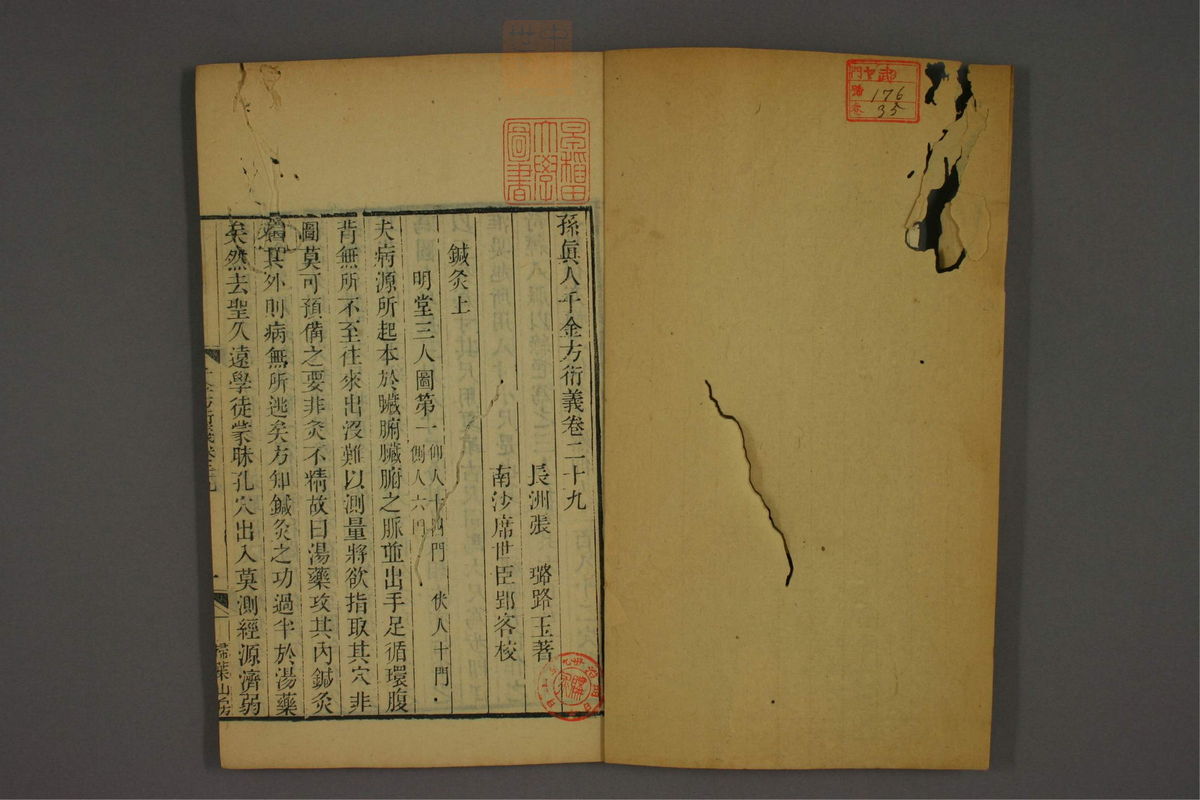 176
35
早稲田
大學
圖書
孫眞人千金方衍義卷二十九
長洲張 璐路玉著
南沙席世臣郢客校
鍼灸上
明堂三人圖第一 仰人十四門 伏人十門 側人六門
夫病源所起本於臟腑臟腑之脈並出手足循環腹
背無所不至往來出没難以測量將欲指取其穴非
圖莫可預備之要非灸不精故曰湯藥攻其内鍼灸
其外則病無所逃矣方知鍼灸之功過半於湯藥
矣然去聖久遠學徒蒙昧孔穴出入莫測經源濟弱
掃葉山房